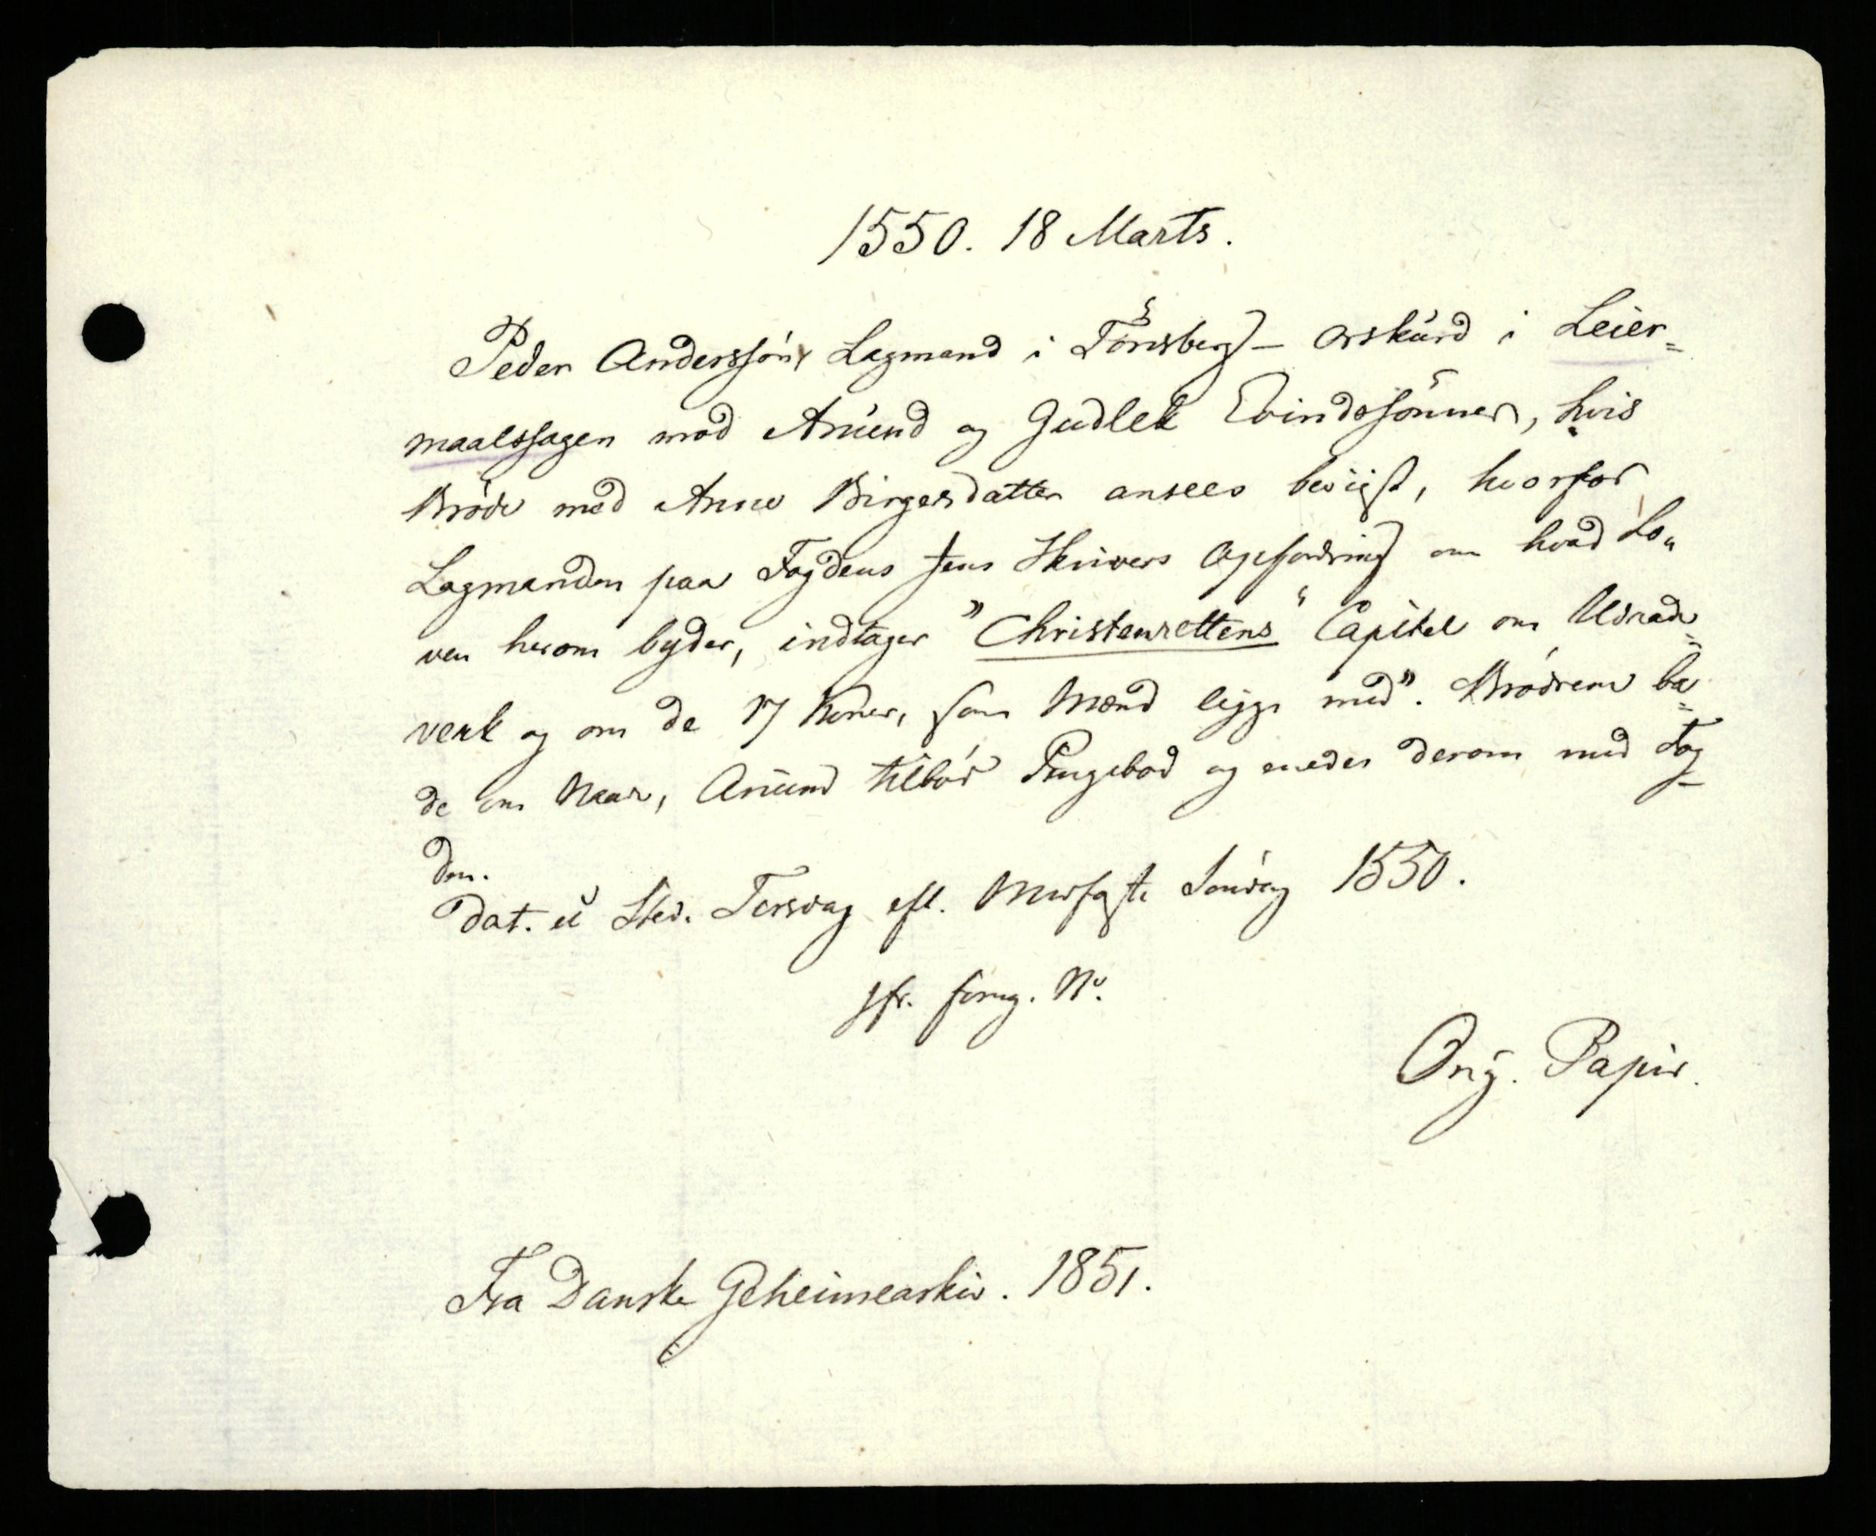 1550. 18 Marts.
Peder Anderssøns Lagmand i Tönsberg – Orskurd i Leier=
maalssagen mod Amund og Gudlek Evindssönner, hvis
Bröde med Anne Birgersdatter ansees beviist, hvorfor
Lagmanden paa Fogdens Jens Skrivers Opfordring om hvad Lo„
ven herom byder, indtager "Christenrettens" Capitel om Udaade
verk og om de 17 Koner, som Mænd ligge med". Brödrene ba=
de om Naade, Amund tilböd Pengebod og enedes derom med Fog
den.
Dat. u Sted. Torsdag eft. Midfaste Sönday 1550.
Jfr. forrg. N°.
Orig. Papir.
Fra Danske Geheimearkiv. 1851.